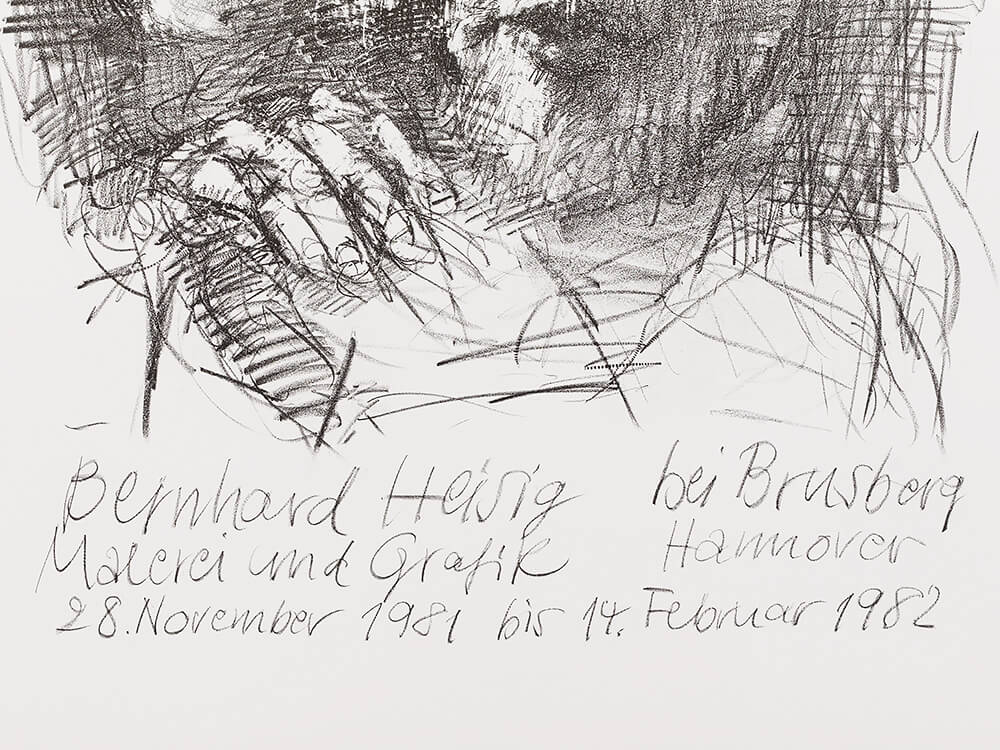 Bernhard Heisig bei Brusberg
Malerei und Grafik Hannover
28. November 1981 bis 14. Februar 1982